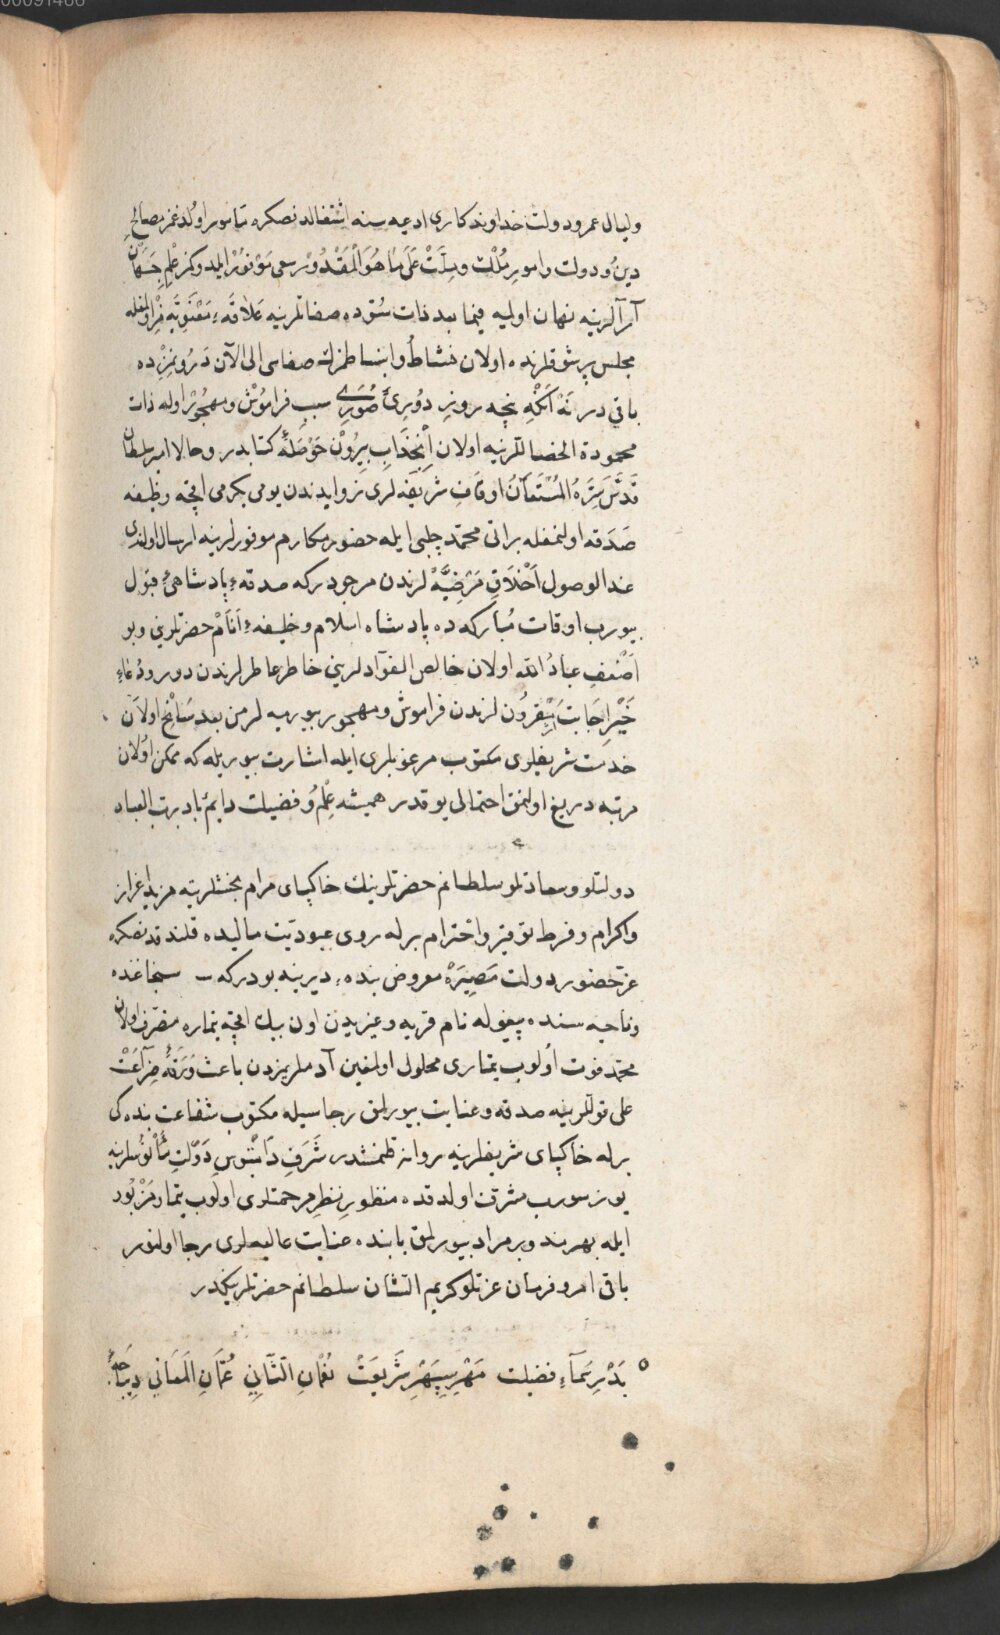 00091466
وليال عمر ودولت خداوندكارى ادعيه سنه اشتغالدنصكره مأمور اولدغمز مصالح
دين ودولت وامور ملك وملت على ما هو المقدور سعى موفور ايلدوكمز علم جهان
آرالرينه نهان اوليه فيما بعد ذات ستوده صفاتلرينه علاقهٔ معنويه مز اولمغله
مجلس پرشوقلرنده اولان نشاط وانبساطمزك صفاسى الى الآن درونمزده
باقي در نه آنكه نيچه روز دورىٔ صورى سبب فراموش ومهجور اوله ذات
محمودة الخصاللرينه اولان انجذاب بيرون حوصلهٔ كتابدر وحالا امير سلطان
قدس سره المستعان اوقاف شريفه لرى زوايدندن يومى يكرمى اقچه وظيفه
صدقه اولنمغله براتى محمد چلبى ايله حضور مكارم موفورلرينه ارسال اولندى
عند الوصول اخلاق مرضيه لرندن مرجودركه صدقهٔ پادشاهىٔ قبول
بيورب اوقات مباركه ده پادشاه اسلام وخليفهٔ انام حضرتلريني وبو
اضعف عباد الله اولان خالص الفؤادلريني خاطر عاطرلرندن دور ودعاء
خير اجابت مقرونلرندن فراموش ومهجور بيورميه لر من بعد سانح اولان
خدمت شريفلرى مكتوب مرغوبلرى ايله اشارت بيوريله كه ممكن اولان
مرتبه دريغ اولنمق احتمالى يوقدر هميشه علم وفضيلت دايم باد برب العباد
دولتلو وسعادتلو سلطانم حضرتلرينك خاكپاى مرام بخشلرينه مزيد اعزاز
واكرام وفرط توقير واحترام برله روى عبوديت ماليده قلندقدنصكره
عز حضور دولت مصيره معروض بندهٔ ديرينه بودركه سنجاغنده
وناحيه سنده پيغوله نام قريه وغيريدن اون بيك اقچه تيماره متصرف اولان
محمد فوت اولوب تيمارى محلول اولمغين آدملريمزدن باعث ورقهٔ ضراعت
على قوللرينه صدقه وعنايت بيورلمق رجاسيله مكتوب شفاعت بنده كى
برله خاكپاى شريفلرينه روانه قلنمشدر شرف دستبوس دولت مأنوسلرينه
يوز سورب مشرف اولدقده منظور نظر مرحمتلرى اولوب تيمار مزبور
ايله بهرمند وبرمراد بيورلمق بابنده عنايت عاليه‌لرى رجا اولنور
باقى امر وفرمان عزتلو كريم الشان سلطانم حضرتلرينكدر
بدر سماء فضيلت مهر سپهر شريعت نعمان الثاني عمان المعاني ديباجهٔ